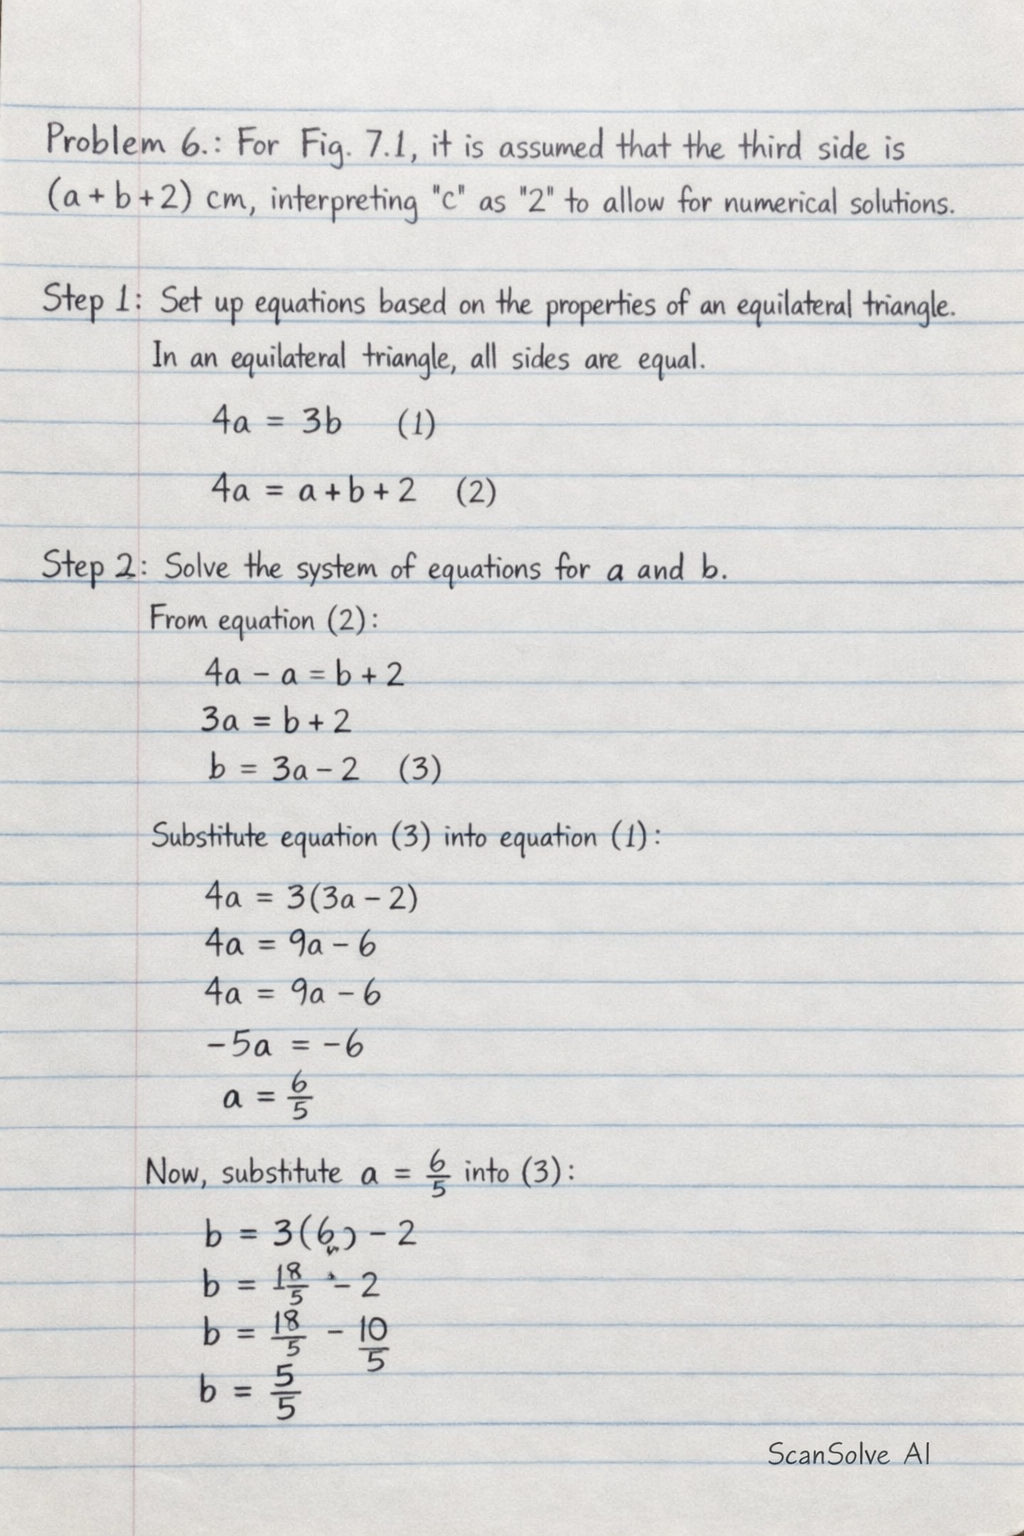 Problem 6.: For Fig. 7.1, it is assumed that the third side is
(a + b + 2) cm, interpreting "c" as "2" to allow for numerical solutions.
Step 1: Set up equations based on the properties of an equilateral triangle.
In an equilateral triangle, all sides are equal.
4a = 3b (1)
4a = a + b + 2 (2)
Step 2: Solve the system of equations for a and b.
From equation (2):
4a - a = b + 2
3a = b + 2
b = 3a - 2 (3)
Substitute equation (3) into equation (1):
4a = 3(3a - 2)
4a = 9a - 6
4a = 9a - 6
-5a = -6
a = 6/5
Now, substitute a = 6/5 into (3):
b = 3(6) - 2
b = 18/5 - 2
b = 18/5 - 10/5
b = 5/5
ScanSolve AI